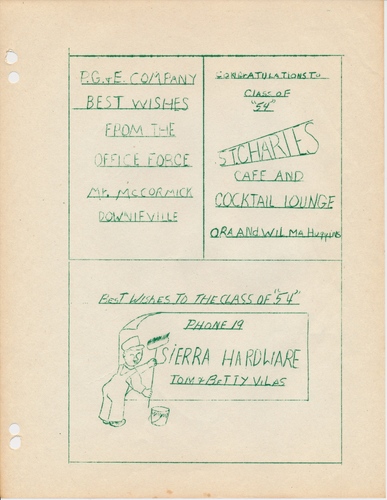 P.G.&E. COMPANY
BEST WISHES
FROM THE
OFFICE FORCE
MR. MCCORMICK
DOWNIEVILLE
CONGRATULATIONS TO
CLASS OF
"54"
ST. CHARLES
CAFE AND
COCKTAIL LOUNGE
ORA AND WILMA
BEST WISHES TO THE CLASS OF "54"
PHONE 19
SIERRA HARDWARE
TOM & BETTY VILAS